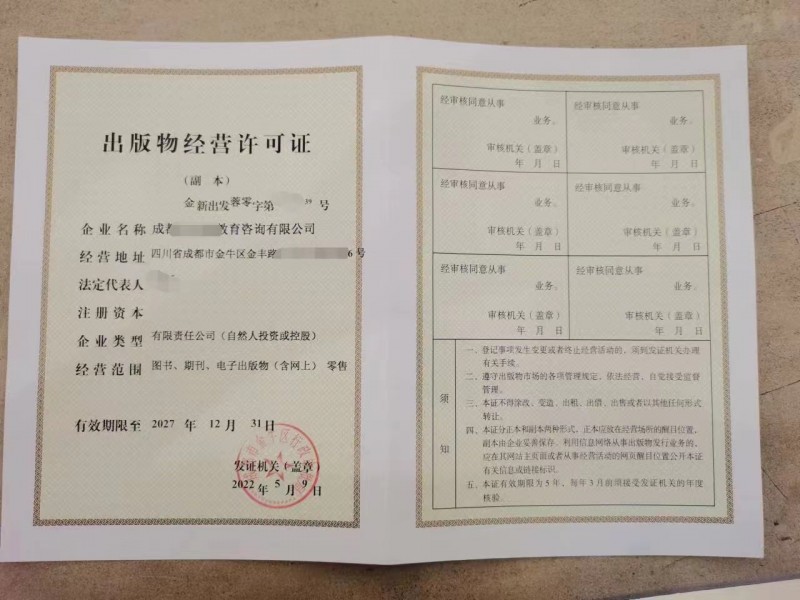 出版物经营许可证
（副 本）
金新出发蓉零字第 39 号
企业名称 成都 教育咨询有限公司
经营地址 四川省成都市金牛区金丰路 6号
法定代表人
注册资本
企业类型 有限责任公司（自然人投资或控股）
经营范围 图书、期刊、电子出版物（含网上）零售
有效期限至 2027 年 12 月 31 日
发证机关（盖章）
2022 年 5 月 9 日
经审核同意从事
业务。
审核机关（盖章）
年 月 日
经审核同意从事
业务。
审核机关（盖章）
年 月 日
经审核同意从事
业务。
审核机关（盖章）
年 月 日
经审核同意从事
业务。
审核机关（盖章）
年 月 日
经审核同意从事
业务。
审核机关（盖章）
年 月 日
经审核同意从事
业务。
审核机关（盖章）
年 月 日
须知
一、登记事项发生变更或者终止经营活动的，须到发证机关办理
有关手续。
二、遵守出版物市场的各项管理规定，依法经营，自觉接受监督
管理。
三、本证不得涂改、变造、出租、出借、出售或者以其他任何形式
转让。
四、本证分正本和副本两种形式，正本应放在经营场所的醒目位置，
副本由企业妥善保存。利用信息网络从事出版物发行业务的，
应在其网站主页面或者从事经营活动的网页醒目位置公开本证
有关信息或链接标识。
五、本证有效期限为5年，每年3月前须接受发证机关的年度
核验。